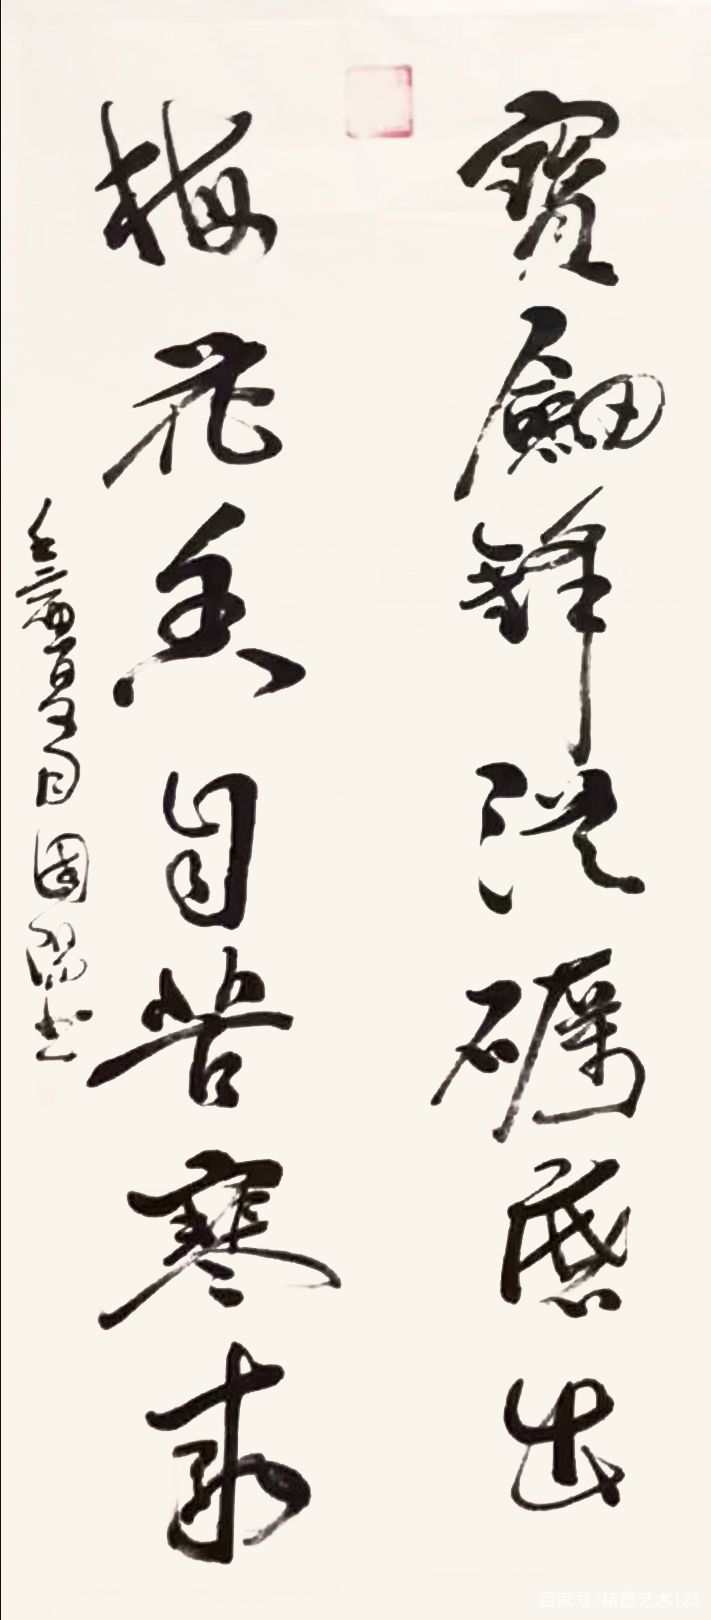 寶劍鋒從礪出
梅花香自苦寒來
壬寅夏月國書
百家号/楮墨艺术123